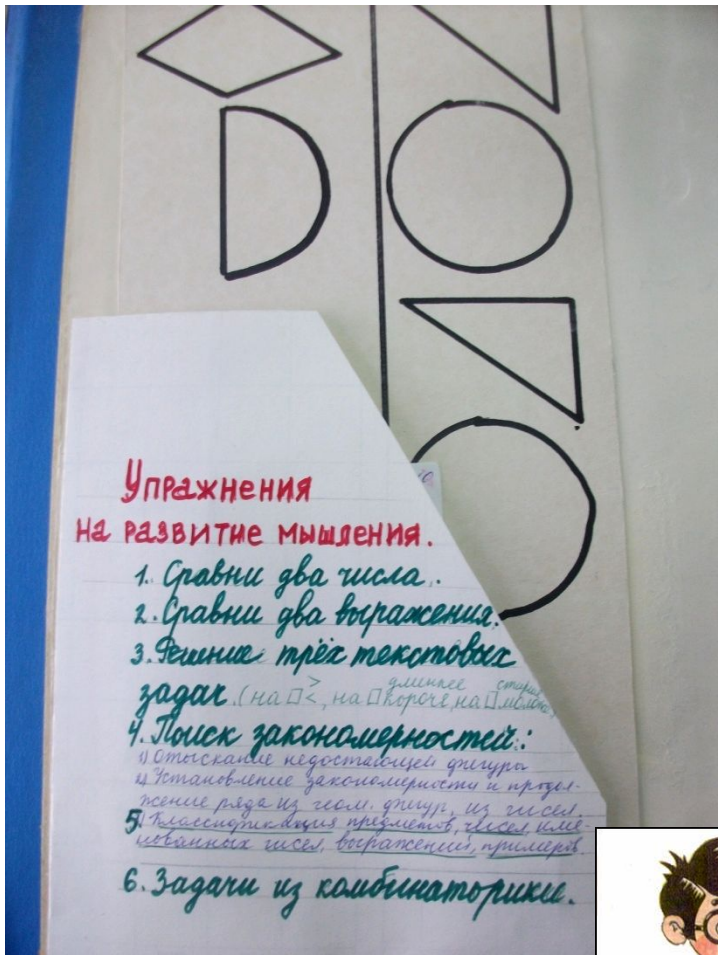 Упражнения
на развитие мышления.
1. Сравни два числа.
2. Сравни два выражения.
3. Решение трёх текстовых
длиннее старше
задач (на □ > <, на □ короче, на □ моложе)
4. Поиск закономерностей:
1) Отыскание недостающей фигуры
2) Установление закономерности и продол-
жение ряда из геом. фигур, из чисел.
5) Классификация предметов, чисел, име-
нованных чисел, выражений, примеров.
6. Задачи из комбинаторики.